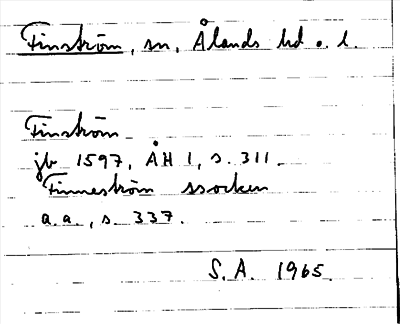 Finström, sn, Ålands hd o. l.
Finström
jb 1597, ÅH 1, s. 311.
Finneström ssocken
a.a., s. 337.
S.A. 1965.